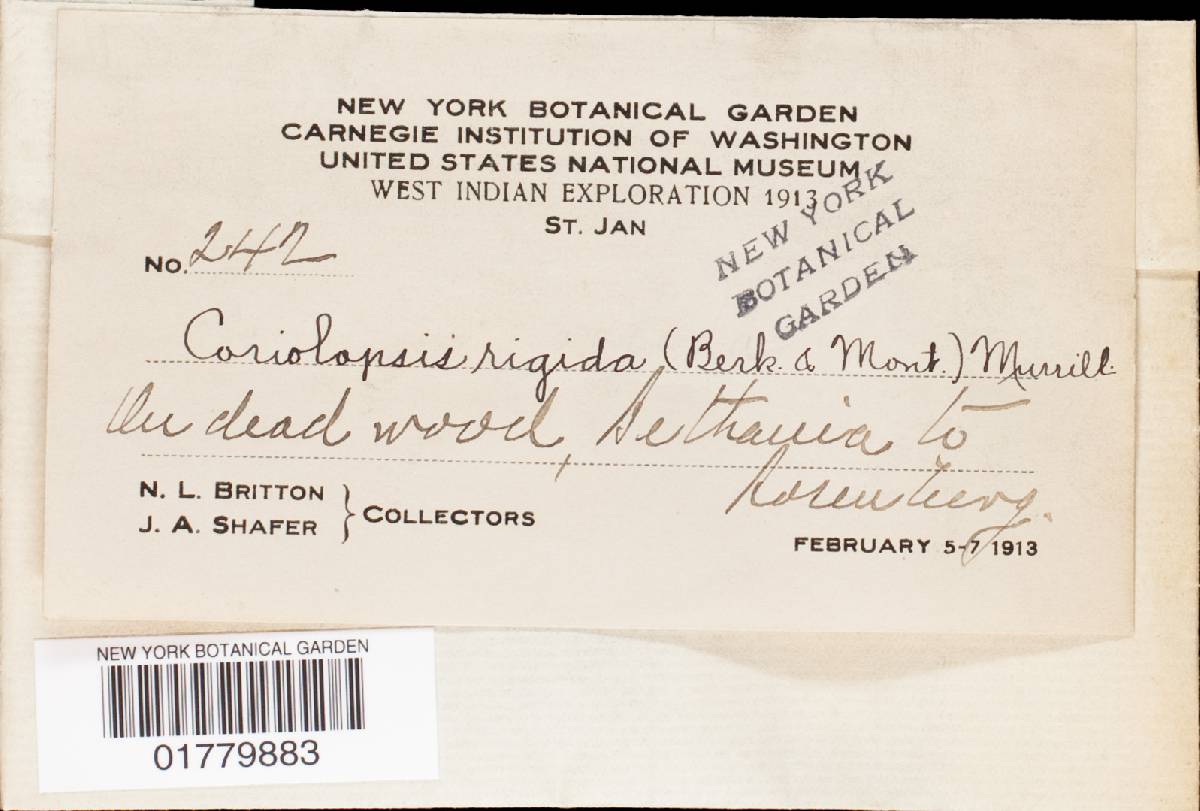 NEW YORK BOTANICAL GARDEN
CARNEGIE INSTITUTION OF WASHINGTON
UNITED STATES NATIONAL MUSEUM
WEST INDIAN EXPLORATION 1913
ST. JAN
NEW YORK
BOTANICAL
GARDEN
No. 242
Coriolopsis rigida (Berk. & Mont.) Murrill.
On dead wood, Bethania to
Rosenberg.
N. L. BRITTON
J. A. SHAFER } COLLECTORS
FEBRUARY 5-7 1913
NEW YORK BOTANICAL GARDEN
01779883